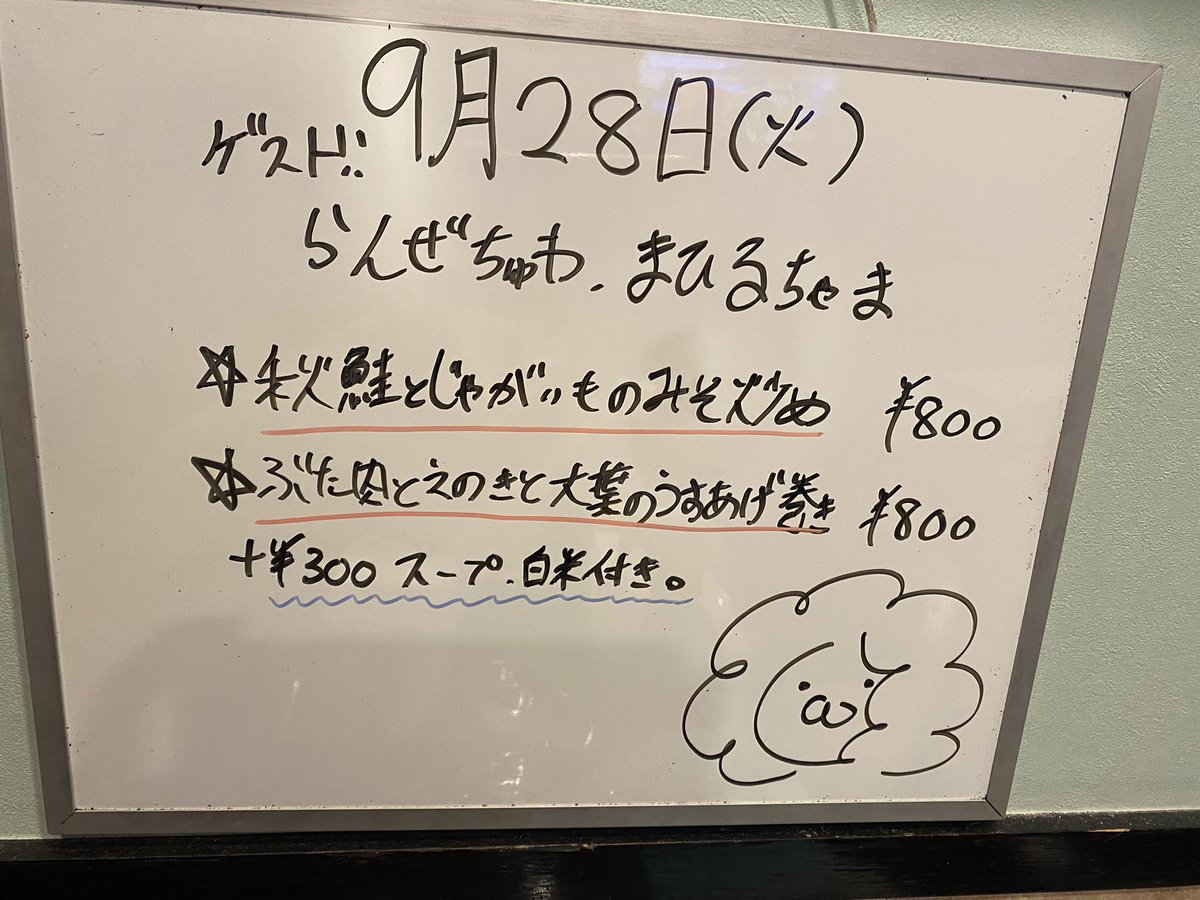 9月28日(火)
ゲスト!!
らんぜちゅわ、まひるちゃま
☆秋鮭とじゃがいものみそ炒め ¥800
☆ぶた肉とえのきと大葉のうすあげ巻き ¥800
+¥300 スープ、白米付き。